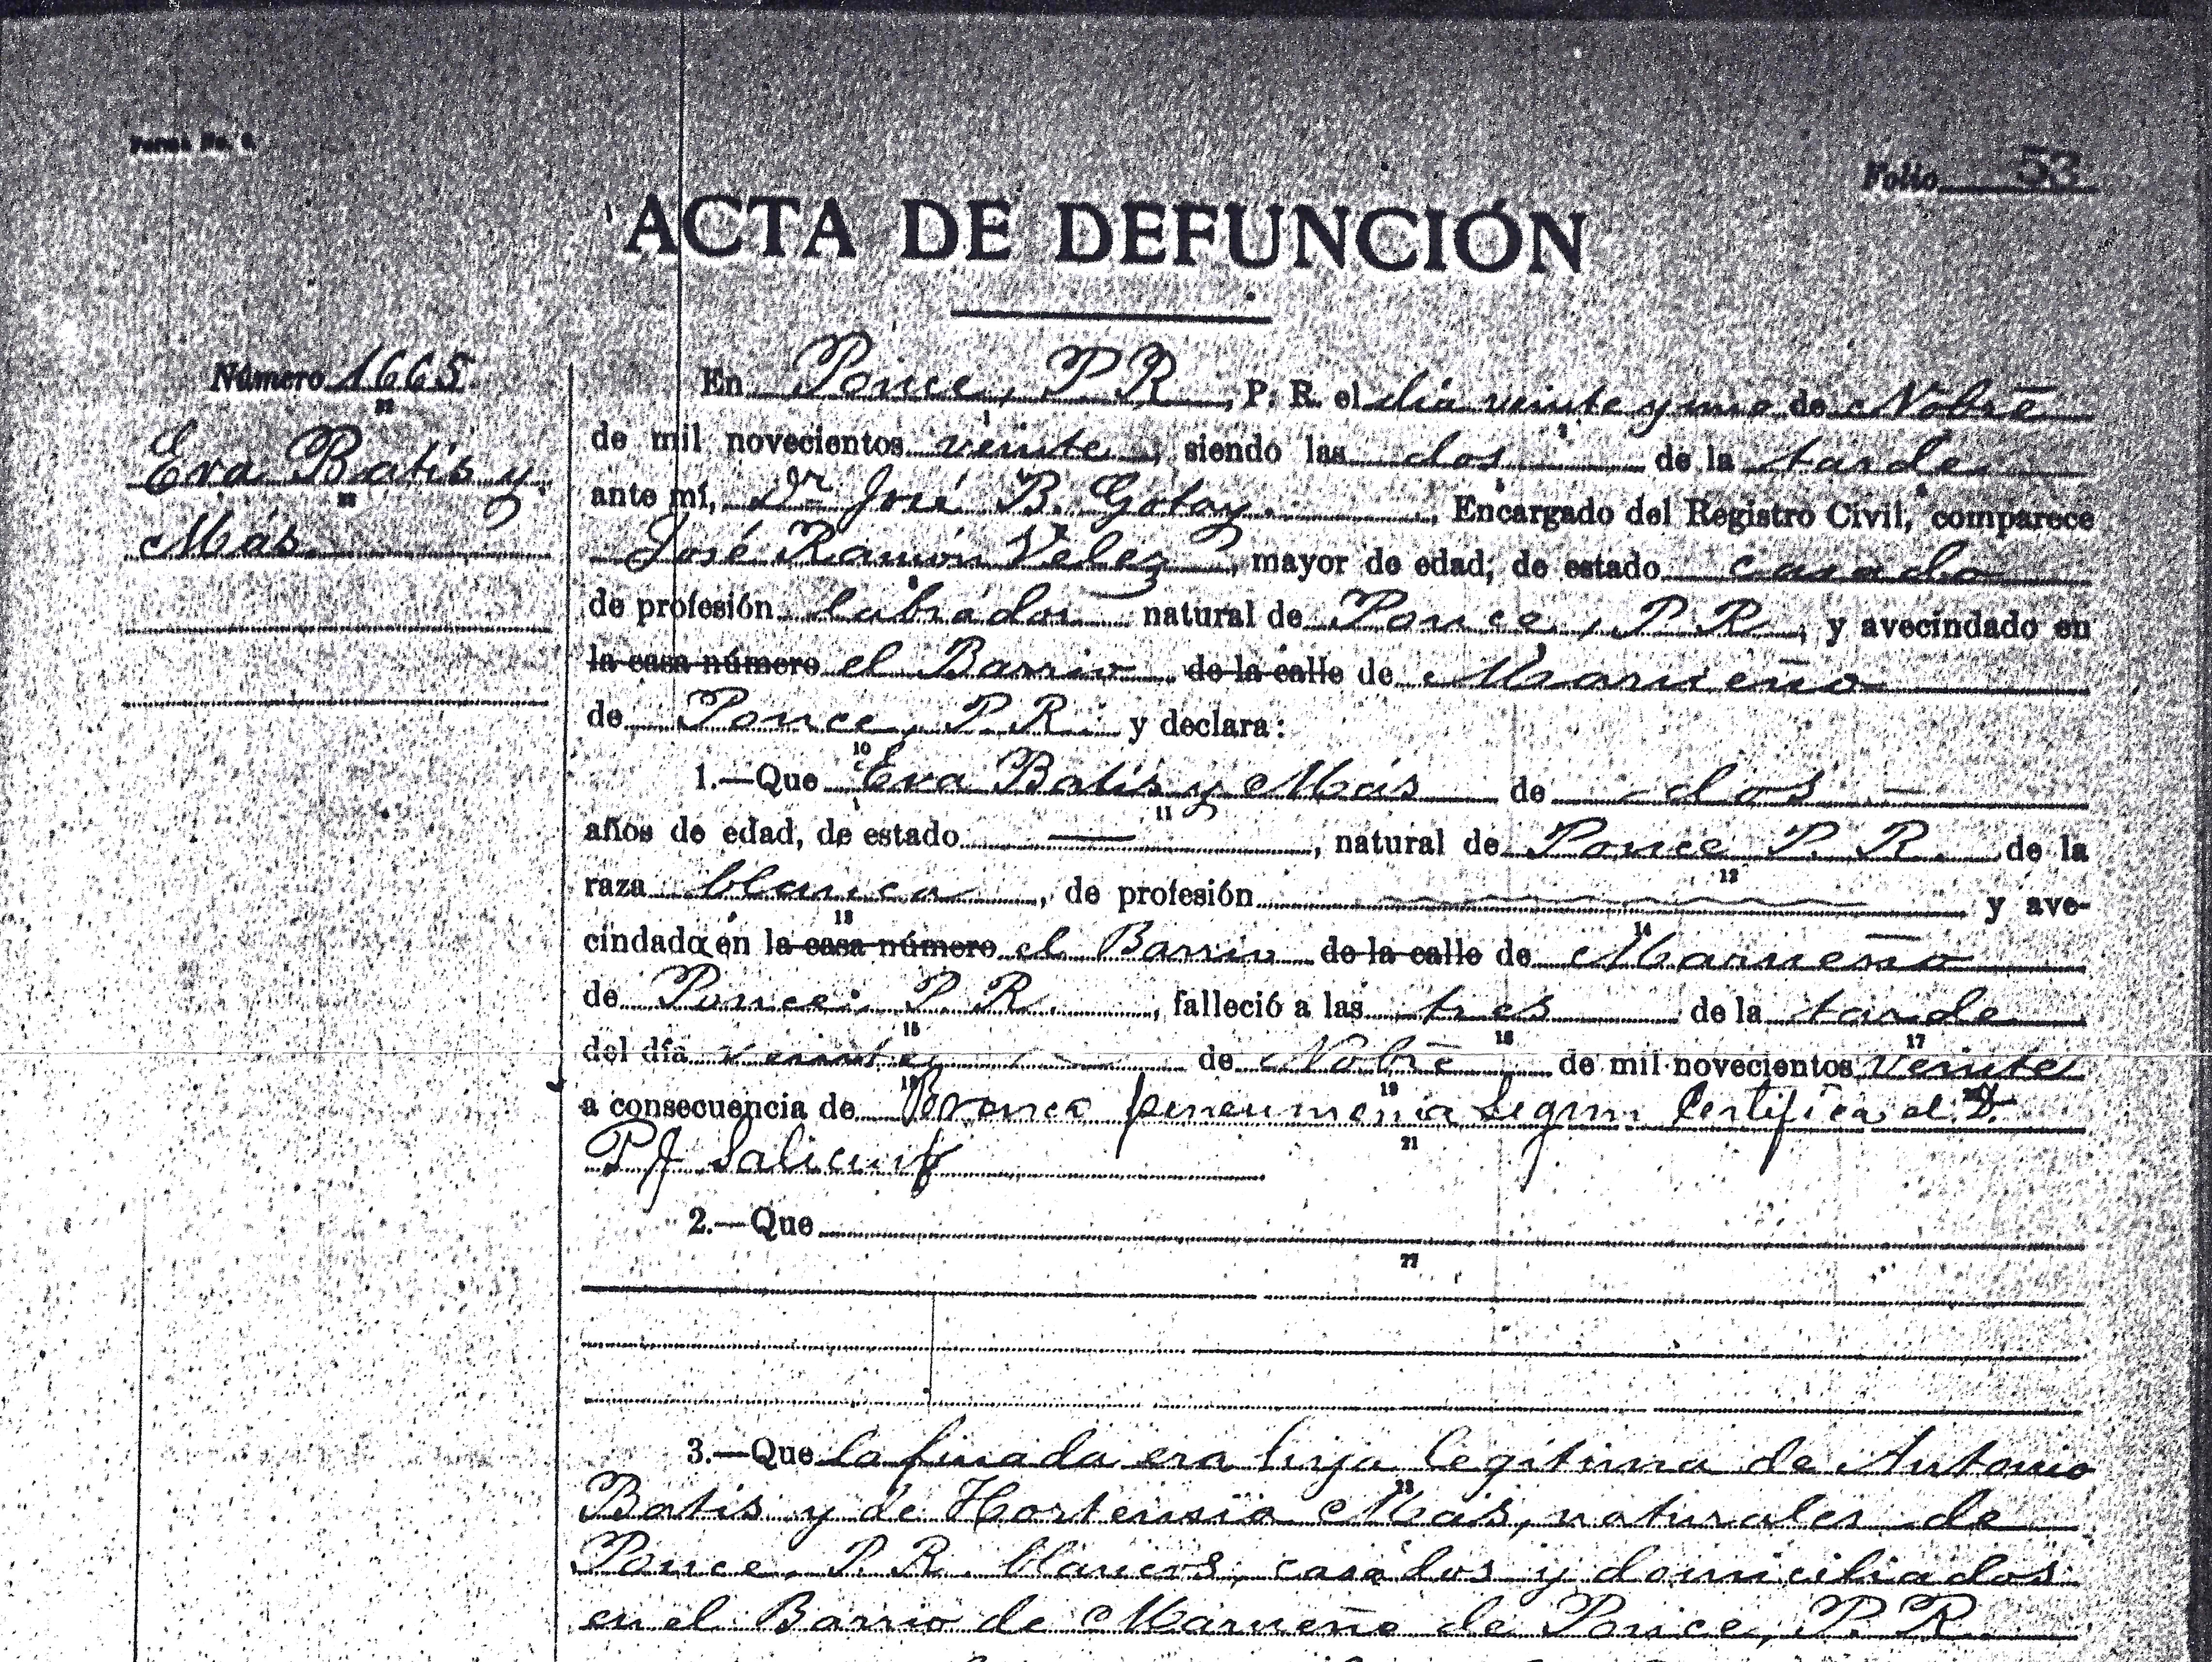 Forma No. 6
Folio 53
ACTA DE DEFUNCIÓN
Número 1665
Eva Batis y
Más
En Ponce, P R, P. R. el día veinte y uno de Nobre
de mil novecientos veinte, siendo las dos de la tarde
ante mí, Dn José B. Gotay, Encargado del Registro Civil, comparece
José Ramón Velez, mayor de edad, de estado casado
de profesión labrador natural de Ponce, P R, y avecindado en
la casa número el Barrio de la calle de Marueño
de Ponce, P. R. y declara:
1.—Que Eva Batis y Más de dos
años de edad, de estado —, natural de Ponce P. R. de la
raza blanca, de profesión y ave-
cindada en la casa número el Barrio de la calle de Marueño
de Ponce, P. R., falleció a las tres de la tarde
del día veinte de Nobre de mil novecientos veinte
a consecuencia de Bronco pneumonia Segun Certifica el D.
P J
2.—Que
3.—Que la finada era hija legitima de Antonio
Batis y de Hortensia Más, naturales de
Ponce, P. R. blancos, casados y domiciliados
en el Barrio de Marueño de Ponce, P. R.